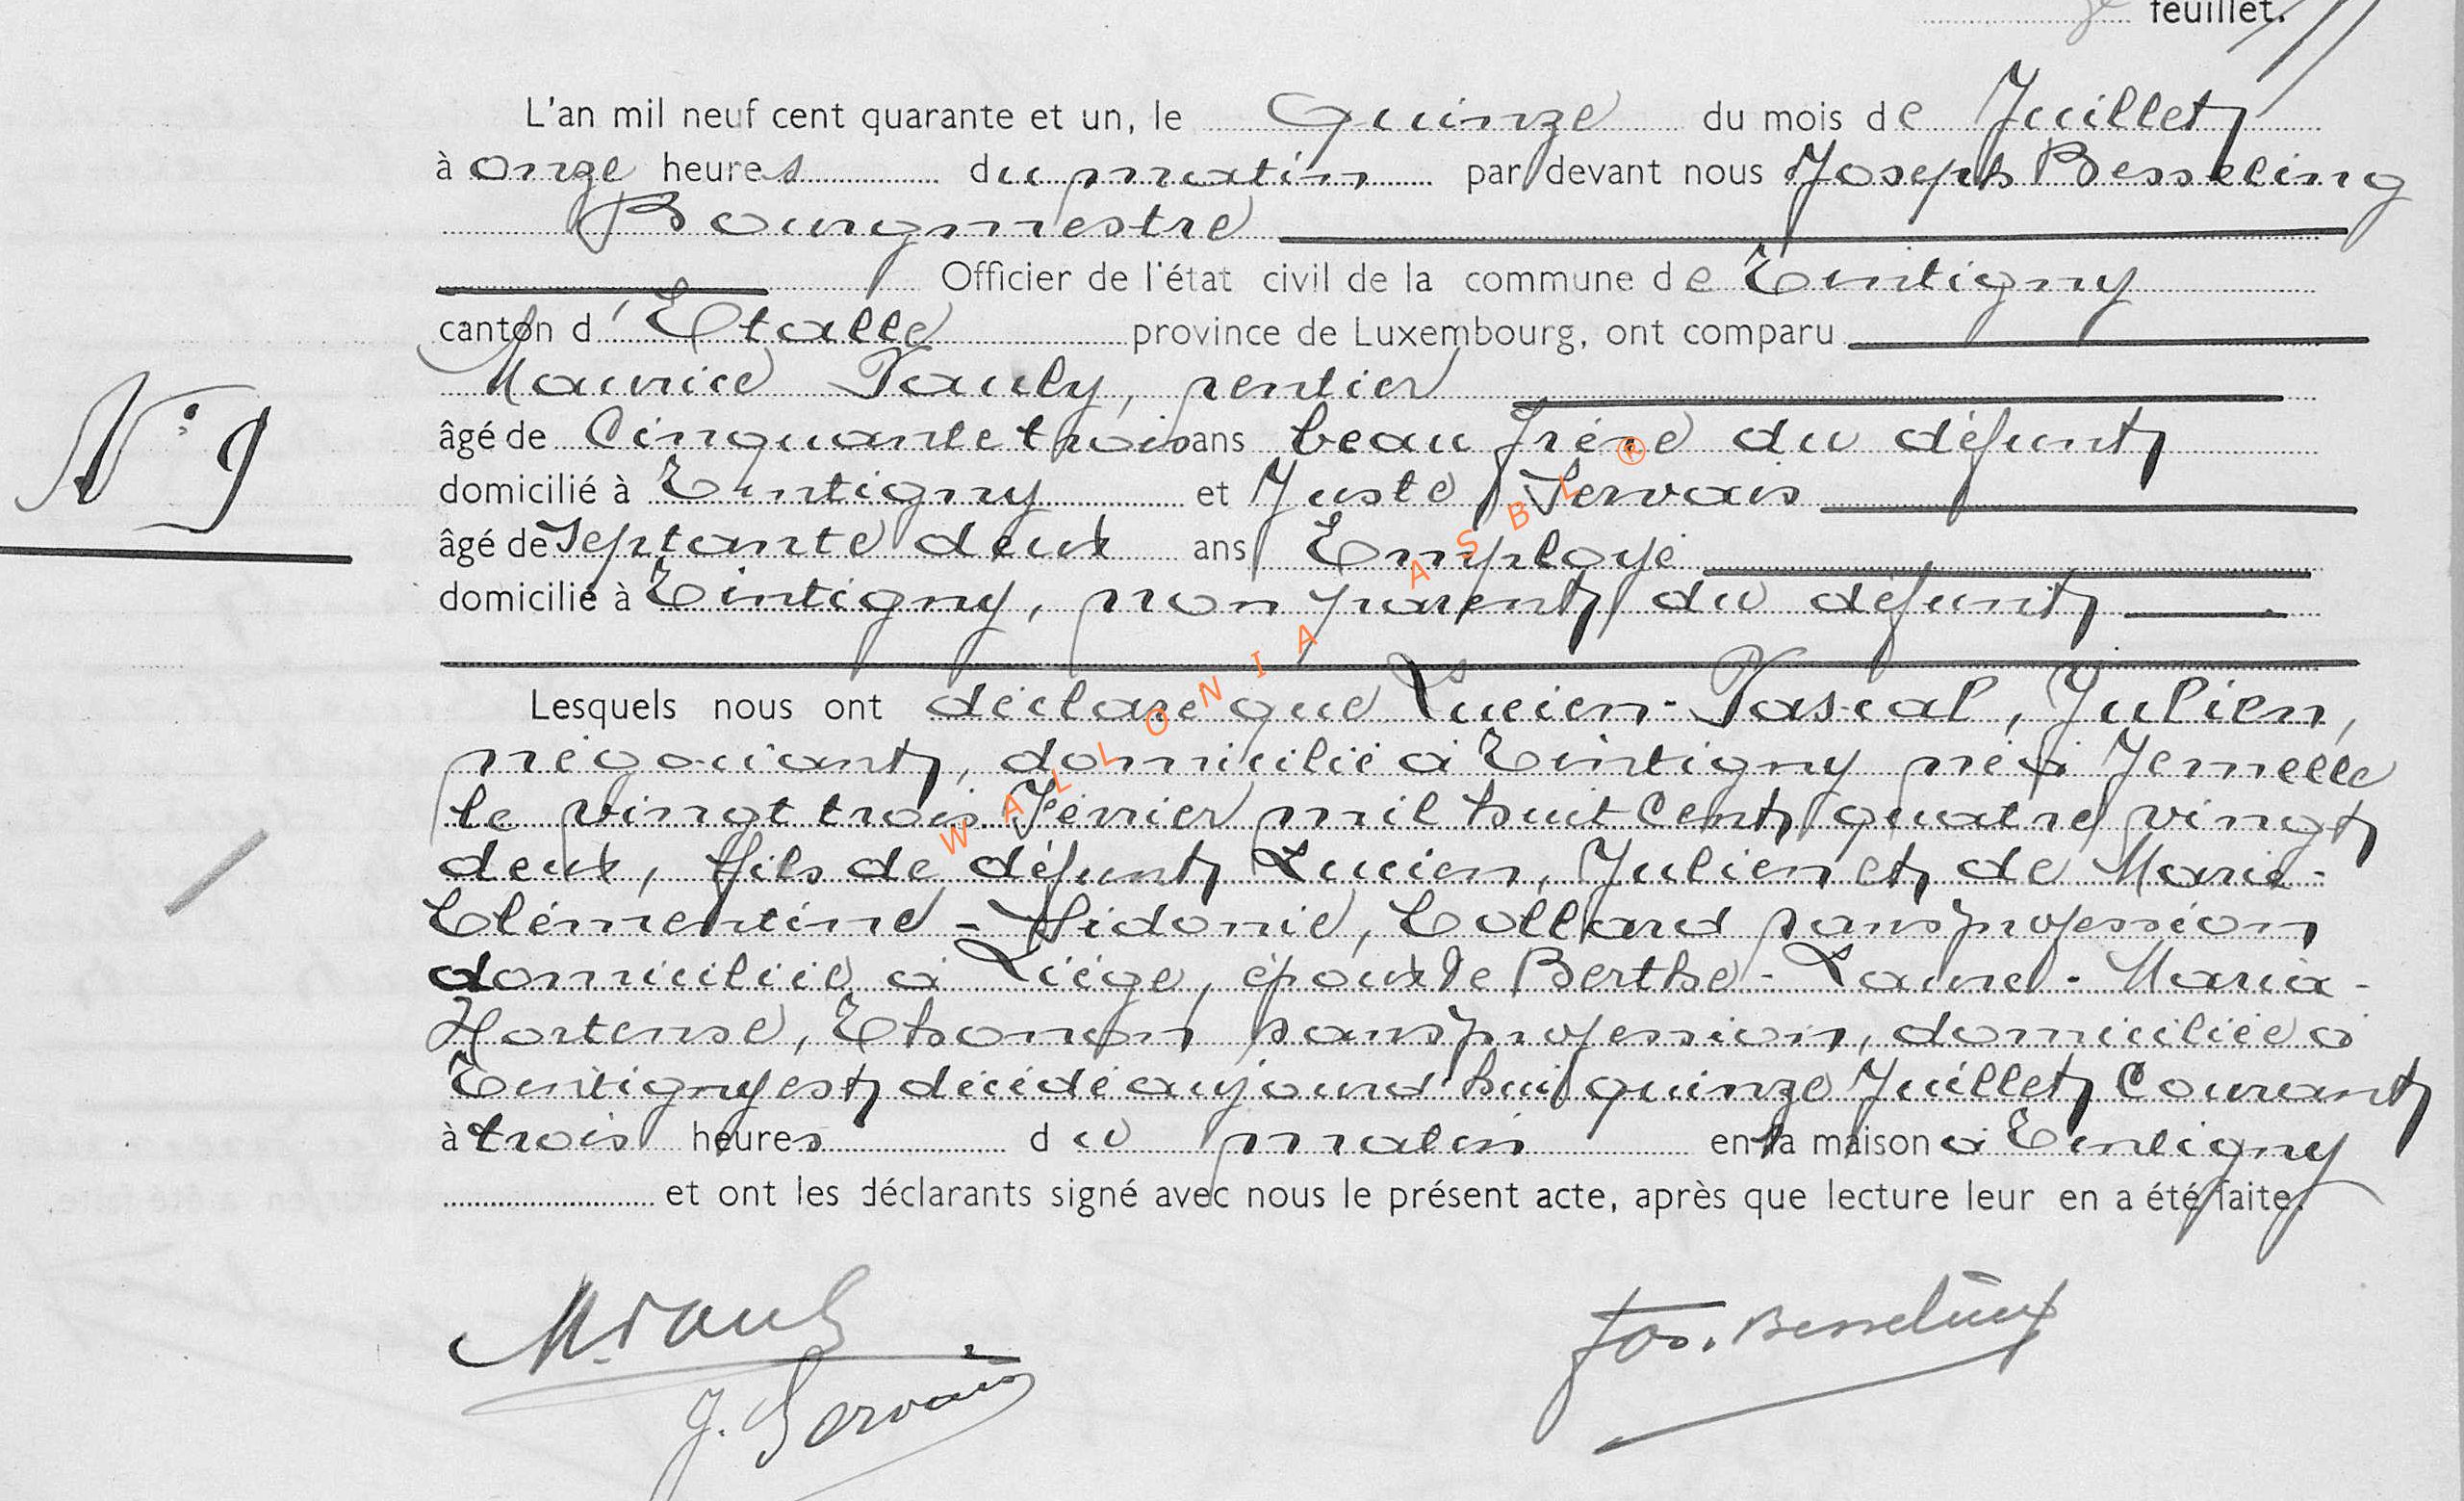 feuillet.
L'an mil neuf cent quarante et un, le Quinze du mois de Juillet
à onze heures du matin par devant nous Joseph Besseling
Bourgmestre
Officier de l'état civil de la commune de Tintigny
canton d'Etalle province de Luxembourg, ont comparu
Maurice Pauly, rentier
âgé de Cinquante trois ans beau frère du défunt
N° 9
domicilié à Tintigny et Juste Servais
âgé de Septante deux ans Employé
domicilié à Tintigny, non parent du défunt
Lesquels nous ont déclaré que Lucien-Pascal, Julien,
négociant, domicilié à Tintigny né à Jemelle
le vingt trois Février mil huit Cent quatre vingt
deux, fils de défunt Lucien, Julien et de Marie-
Clémentine-Sidonie, Collard sans profession
domiciliée à Liège, époux de Berthe-Laure-Maria-
Hortense, Thonon sans profession, domiciliée à
Tintigny est décédé aujourd'hui quinze Juillet Courant
à trois heures du matin en la maison à Tintigny
et ont les déclarants signé avec nous le présent acte, après que lecture leur en a été faite.
M. Pauly
J. Servais
Jos. Besseling
WALLONIA ASBL ®